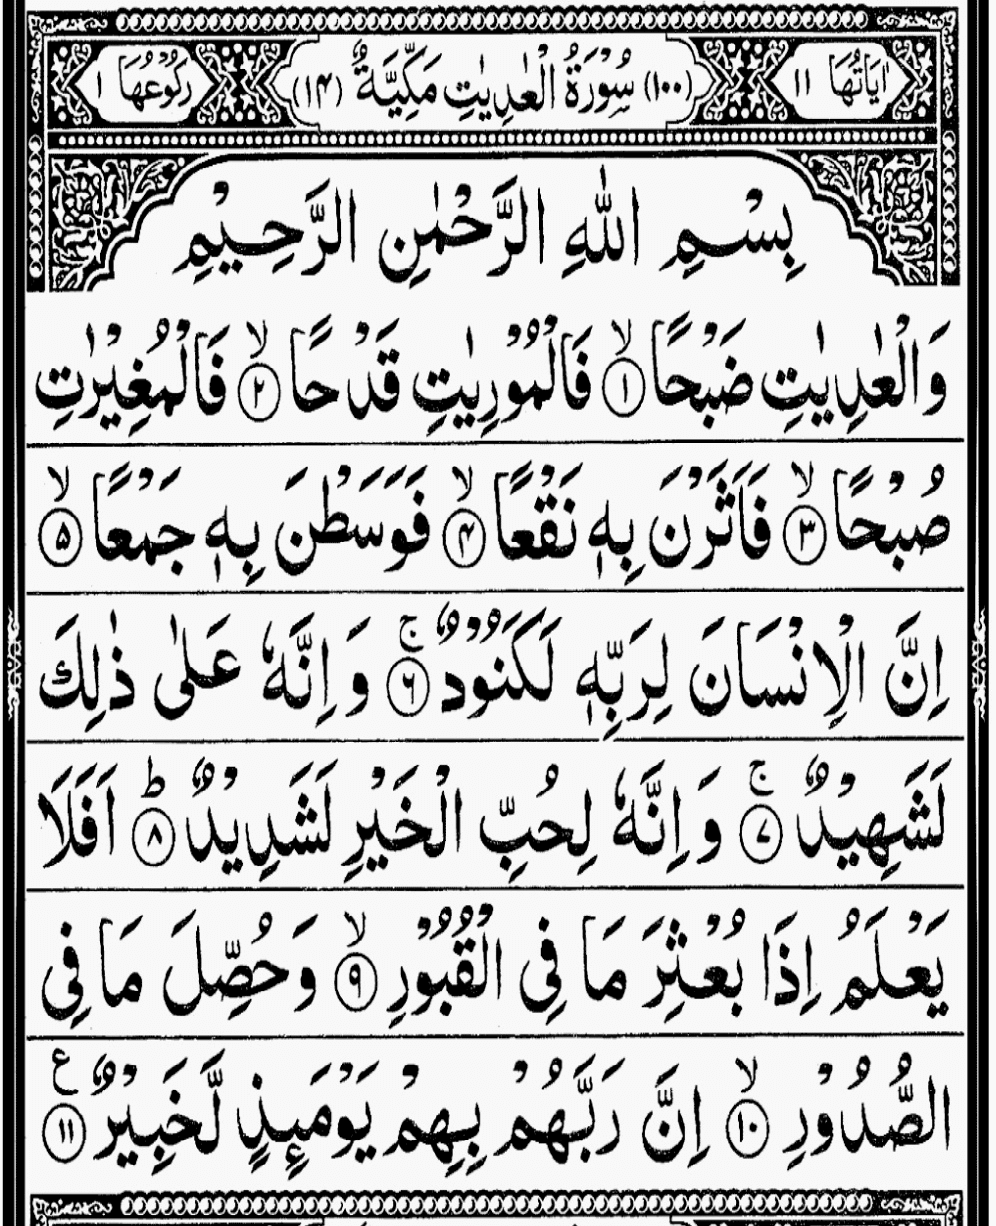 اٰيَاتُهَا ١١ (١٠٠) سُوْرَةُ الْعٰدِيٰتِ مَكِّيَّةٌ (١۴) رُكُوْعُهَا ١
بِسْمِ اللّٰهِ الرَّحْمٰنِ الرَّحِيْمِ
وَالْعٰدِيٰتِ ضَبْحًا ۙ﴿١﴾ فَالْمُوْرِيٰتِ قَدْحًا ۙ﴿٢﴾ فَالْمُغِيْرٰتِ
صُبْحًا ۙ﴿٣﴾ فَاَثَرْنَ بِهٖ نَقْعًا ۙ﴿۴﴾ فَوَسَطْنَ بِهٖ جَمْعًا ۙ﴿۵﴾
اِنَّ الْاِنْسَانَ لِرَبِّهٖ لَكَنُوْدٌ ۚ﴿۶﴾ وَ اِنَّهٗ عَلٰى ذٰلِكَ
لَشَهِيْدٌ ۚ﴿۷﴾ وَ اِنَّهٗ لِحُبِّ الْخَيْرِ لَشَدِيْدٌ ؕ﴿۸﴾ اَفَلَا
يَعْلَمُ اِذَا بُعْثِرَ مَا فِى الْقُبُوْرِ ۙ﴿۹﴾ وَ حُصِّلَ مَا فِى
الصُّدُوْرِ ۙ﴿١٠﴾ اِنَّ رَبَّهُمْ بِهِمْ يَوْمَىِٕذٍ لَّخَبِيْرٌ ﴿١١﴾ ع